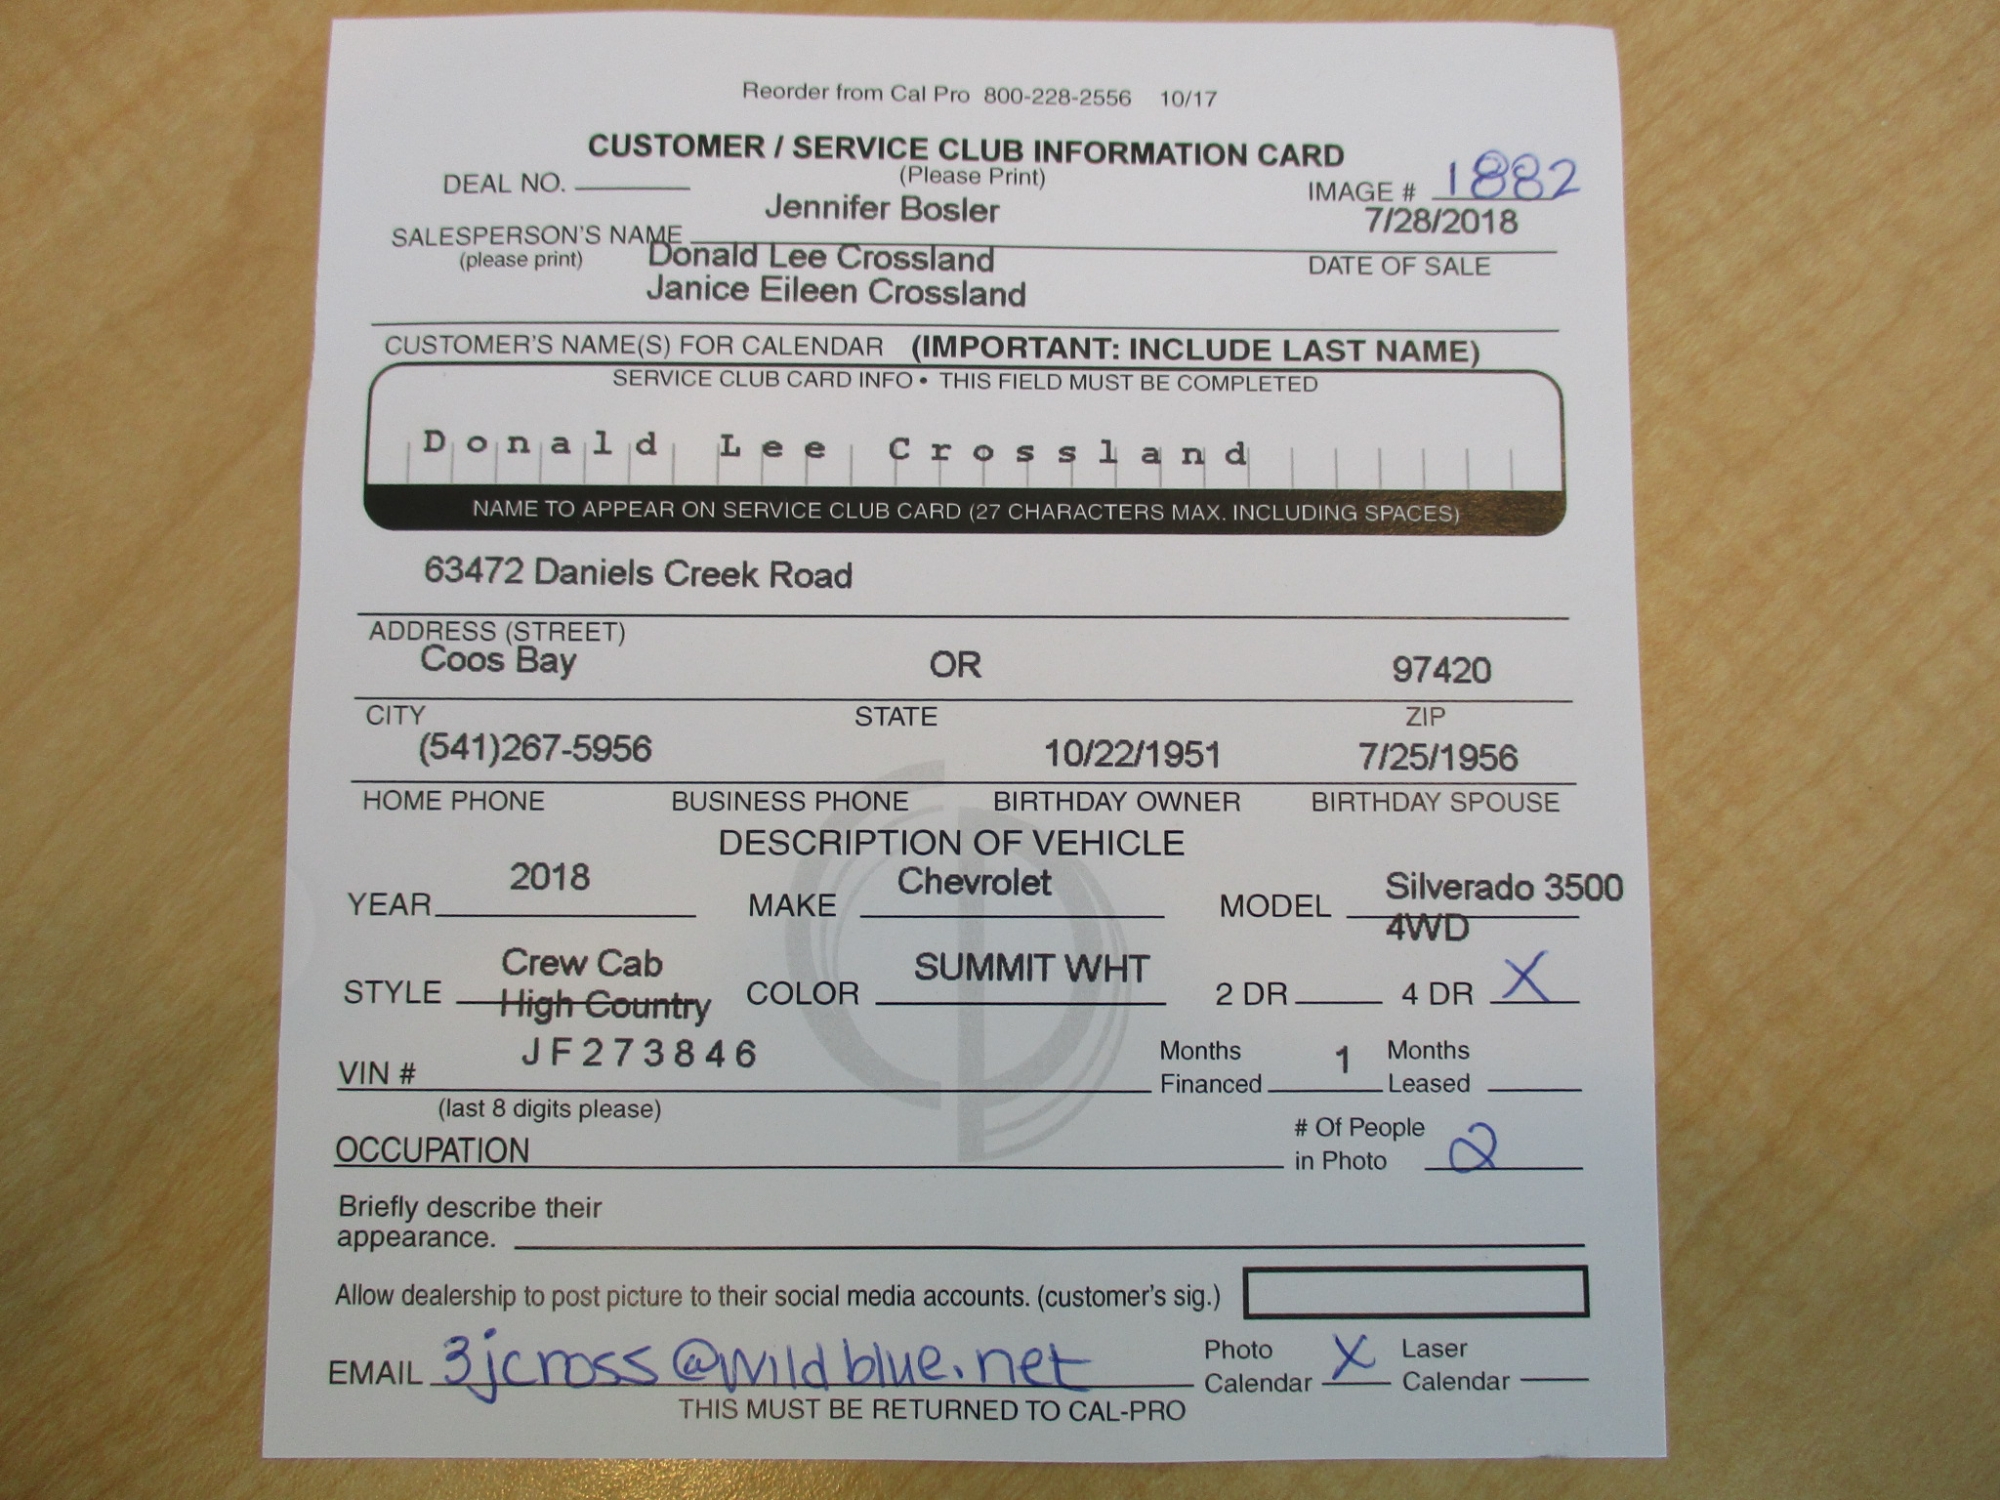 Reorder from Cal Pro 800-228-2556 10/17
CUSTOMER / SERVICE CLUB INFORMATION CARD
(Please Print)
DEAL NO. IMAGE # 1882
Jennifer Bosler 7/28/2018
SALESPERSON'S NAME
(please print) DATE OF SALE
Donald Lee Crossland
Janice Eileen Crossland
CUSTOMER'S NAME(S) FOR CALENDAR (IMPORTANT: INCLUDE LAST NAME)
SERVICE CLUB CARD INFO • THIS FIELD MUST BE COMPLETED
Donald Lee Crossland
NAME TO APPEAR ON SERVICE CLUB CARD (27 CHARACTERS MAX. INCLUDING SPACES)
63472 Daniels Creek Road
ADDRESS (STREET)
Coos Bay OR 97420
CITY STATE ZIP
(541)267-5956 10/22/1951 7/25/1956
HOME PHONE BUSINESS PHONE BIRTHDAY OWNER BIRTHDAY SPOUSE
DESCRIPTION OF VEHICLE
YEAR 2018 MAKE Chevrolet MODEL Silverado 3500
4WD
STYLE Crew Cab
High Country COLOR SUMMIT WHT 2 DR 4 DR X
VIN # JF273846 Months Financed 1 Months Leased
(last 8 digits please)
OCCUPATION # Of People in Photo 2
Briefly describe their
appearance.
Allow dealership to post picture to their social media accounts. (customer's sig.)
EMAIL 3jcross@wildblue.net Photo Calendar X Laser Calendar
THIS MUST BE RETURNED TO CAL-PRO